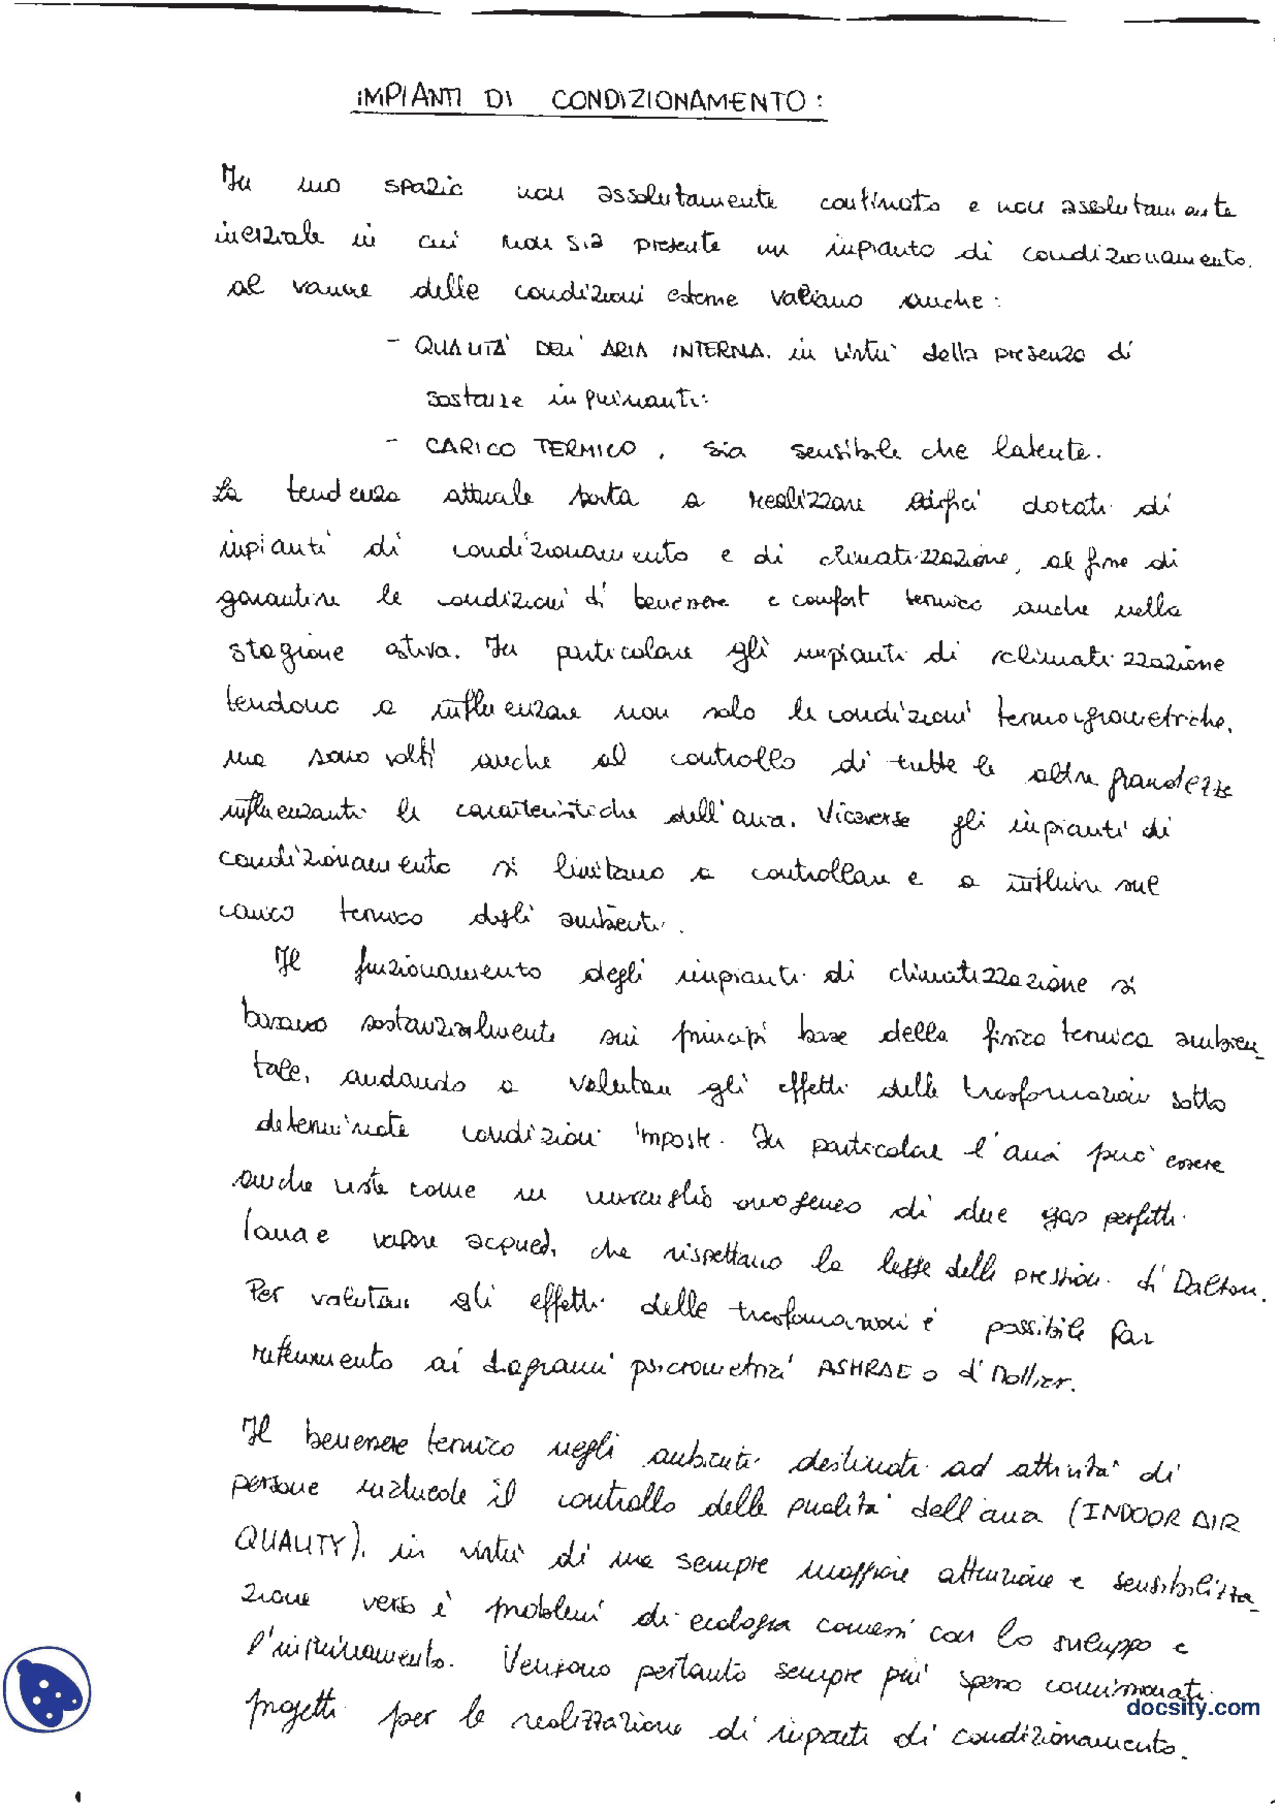 IMPIANTI DI CONDIZIONAMENTO:
In uno spazio non assolutamente confinato e non assolutamente
inerziale in cui non sia presente un impianto di condizionamento.
al variare delle condizioni esterne variano anche:
- QUALITÀ DELL'ARIA INTERNA. in virtù della presenza di
sostanze inquinanti:
- CARICO TERMICO, sia sensibile che latente.
La tendenza attuale porta a realizzare edifici dotati di
impianti di condizionamento e di climatizzazione, al fine di
garantire le condizioni di benessere e comfort termico anche nella
stagione estiva. In particolare gli impianti di climatizzazione
tendono a influenzare non solo le condizioni termoigrometriche,
ma sono volti anche al controllo di tutte le altre grandezze
influenzanti le caratteristiche dell'aria. Viceverse gli impianti di
condizionamento si limitano a controllare e a influire sul
carico termico degli ambienti.
Il funzionamento degli impianti di climatizzazione si
basano sostanzialmente sui principi base della fisica tecnica ambien_
tale, andando a valutare gli effetti delle trasformazioni sotto
determinate condizioni imposte. In particolare l'aria può essere
anche vista come un miscuglio omogeneo di due gas perfetti
(aria e vapore acqueo), che rispettano la legge delle pressioni di Dalton.
Per valutare gli effetti delle trasformazioni è possibile far
riferimento ai diagrammi psicrometrici ASHRAE o di Mollier.
Il benessere termico negli ambienti destinati ad attività di
persone include il controllo della qualità dell'aria (INDOOR AIR
QUALITY), in virtù di una sempre maggiore attenzione e sensibilizza_
zione verso i problemi di ecologia connessi con lo sviluppo e
l'inquinamento. Vengono pertanto sempre più spesso commissionati
progetti per la realizzazione di impianti di condizionamento.
docsity.com